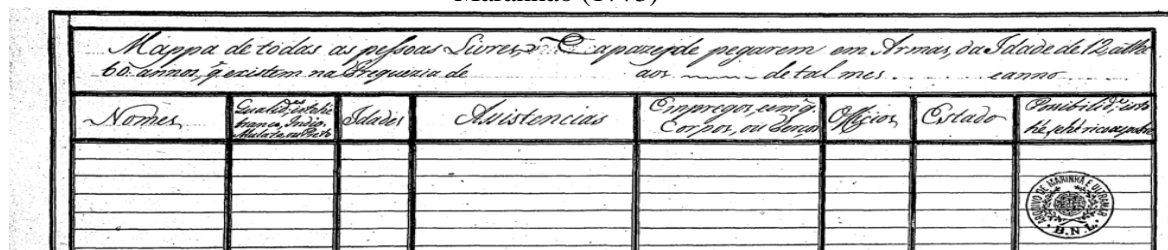 Maranhão (1775)
Mappa de todas as peſsoas Livres, e capazes de pegarem em Armas, da Idade de 12, athe
60 annos, q̃ existem na Freguezia de aos ........ de tal mes ..... e anno ........
Nomes
Qualid.ᵉ, isto hé
branco, Indio,
Mulato, ou Preto
Idades
Asistencias
Empregos, em q̃
Corpos, ou
Officios
Estado
Posibilid.ᵉ, isto
hé, se hé rico ou pobre
ARQUIVO DE MARINHA E ULTRAMAR
B.N.L.